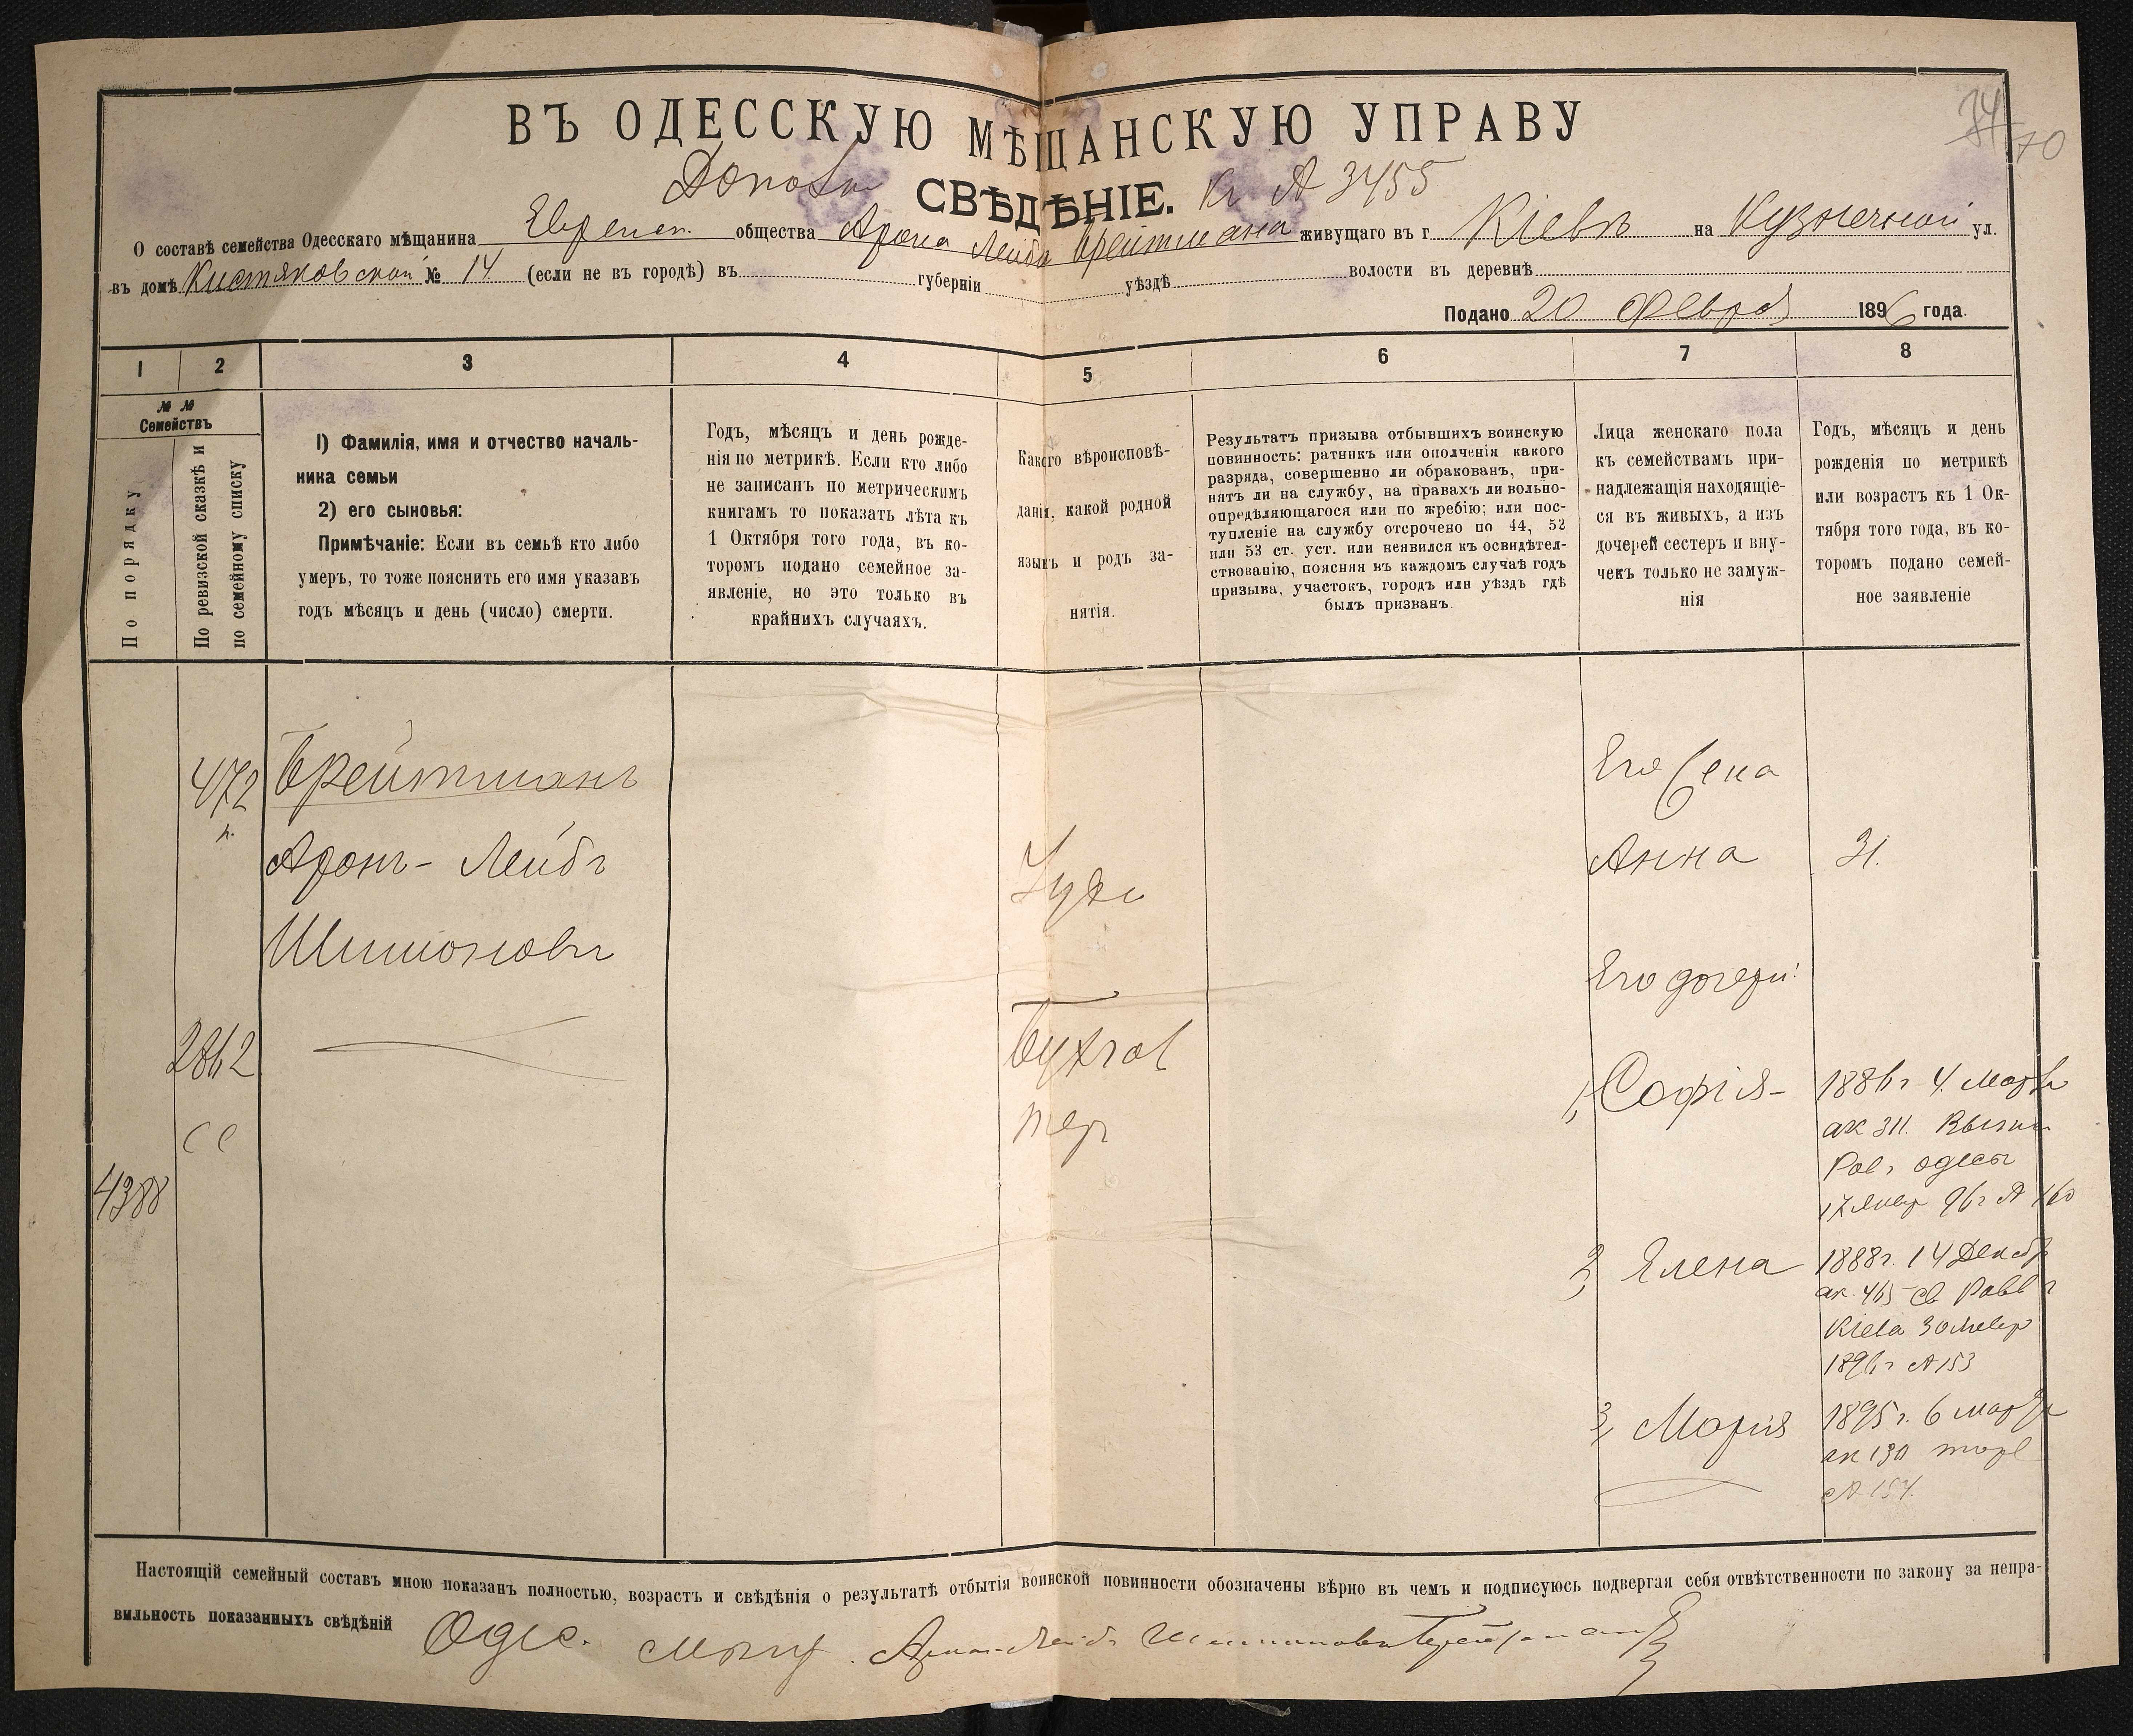 34
70
ВЪ ОДЕССКУЮ МѢЩАНСКУЮ УПРАВУ
СВѢДѢНІЕ. 3455
О составѣ семейства Одесскаго мѣщанина Еврейск. общества Арона Лейба Брейтмана живущаго въ г Кіевѣ на Кузнечной ул.
въ домѣ Кистяковской № 14 (если не въ городѣ) въ губерніи уѣздѣ волости въ деревнѣ
Подано 20 Феврал 1896 года.
1 2 3 4 5 6 7 8
№ №
Семействъ
По порядку
По ревизской сказкѣ и
по семейному списку
1) Фамилія, имя и отчество началь-
ника семьи
2) его сыновья:
Примѣчаніе: Если въ семьѣ кто либо
умеръ, то тоже пояснить его имя указавъ
годъ мѣсяцъ и день (число) смерти.
Годъ, мѣсяцъ и день рожде-
нія по метрикѣ. Если кто либо
не записанъ по метрическимъ
книгамъ то показать лѣта къ
1 Октября того года, въ ко-
торомъ подано семейное за-
явленіе, но это только въ
крайнихъ случаяхъ.
Какого вѣроисповѣ-
данія, какой родной
языкъ и родъ за-
нятія.
Результатъ призыва отбывшихъ воинскую
повинность: ратникъ или ополченія какого
разряда, совершенно ли обракованъ, при-
нятъ ли на службу, на правахъ ли вольно-
опредѣляющагося или по жребію; или пос-
тупленіе на службу отсрочено по 44, 52
или 53 ст. уст. или неявился къ освидѣтел-
ствованію, поясняя въ каждомъ случаѣ годъ
призыва, участокъ, городъ или уѣздъ гдѣ
былъ призванъ
Лица женскаго пола
къ семействамъ при-
надлежащія находящіе-
ся въ живыхъ, а изъ
дочерей сестеръ и вну-
чекъ только не замуж-
нія
Годъ, мѣсяцъ и день
рожденія по метрикѣ
или возрастъ къ 1 Ок-
тября того года, въ ко-
торомъ подано семей-
ное заявленіе
472
Брейтманъ
Аронъ-Лейбъ
Шимоновъ
2862
4388
Іуде
Бухгал
тер
Его жена
Анна 31.
Его дочери:
1, Софія- 1886г 4. Марта
ак 311.
Рав. Одесы
17 Январ 96г № 160
2, Елена 1888г. 14 Декабр
ак. 465 св Равв г
Кіева 30 Январ
1896г № 153
3, Марія 1895г. 6 Марта
ак 130
№ 154.
Настоящій семейный составъ мною показанъ полностью, возрастъ и свѣдѣнія о результатѣ отбытія воинской повинности обозначены вѣрно въ чемъ и подписуюсь подвергая себя отвѣтственности по закону за непра-
вильность показанныхъ свѣдѣній Одес. мѣщ. Аронъ-Лейбъ Шимоновъ Брейтманъ